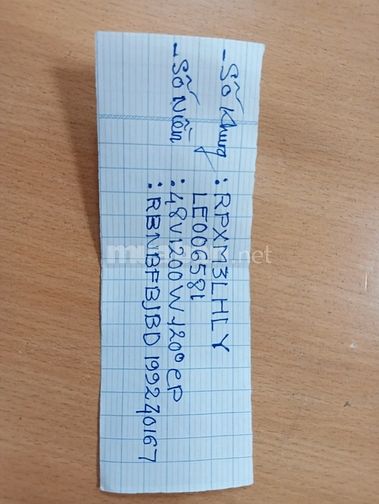 - Số Khung : RPXM3LHLY
LE006581
- Số Niền : 48V1200W-120°CP
: RBNBFBJBD199240167
muaban.net